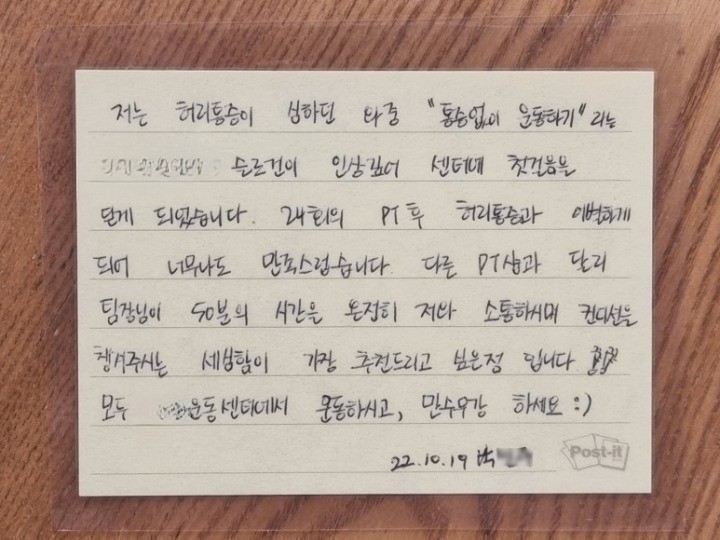 저는 허리통증이 심하던 와중 "통증없이 운동하기" 라는
슬로건이 인상깊어 센터에 첫걸음을
딛게 되었습니다. 24회의 PT 후 허리통증과 이별하게
되어 너무나도 만족스럽습니다. 다른 PT샵과 달리
팀장님이 50분의 시간은 온전히 저와 소통하시며 컨디션을
챙겨주시는 세심함이 가장 추천드리고 싶은점 입니다
모두 운동센터에서 운동하시고, 만수무강 하세요 :)
22.10.19 박
Post-it